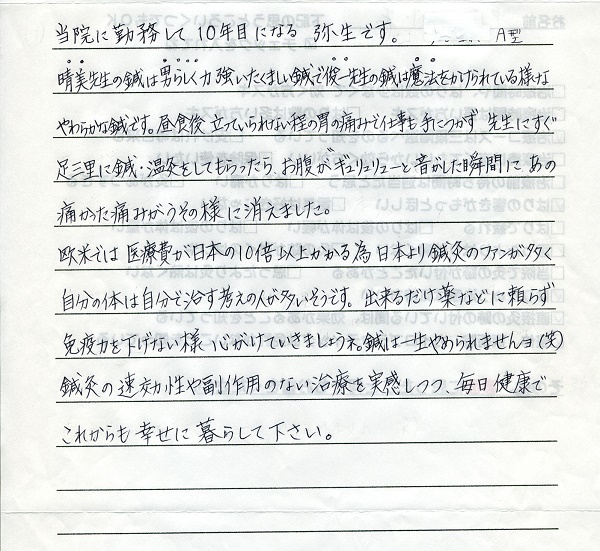 当院に勤務して10年目になる 弥生です。 A型
晴美先生の鍼は男らしく力強いたくましい鍼で俊一先生の鍼は魔法をかけられている様な
やわらかな鍼です。昼食後 立っていられない程の胃の痛みで仕事も手につかず 先生にすぐ
足三里に鍼・温灸をしてもらったら、お腹が"ギュリュリューと音がした瞬間に、あの
痛かった痛みがうその様に消えました。
欧米では 医療費が日本の10倍以上かかる為 日本より鍼灸のファンが多く
自分の体は自分で治す考えの人が多いそうです。出来るだけ薬などに頼らず
免疫力を下げない様 心がけていきましょうネ。鍼は一生やめられませんヨ(笑)
鍼灸の速効性や副作用のない治療を実感しつつ、毎日健康で
これからも幸せに暮らして下さい。